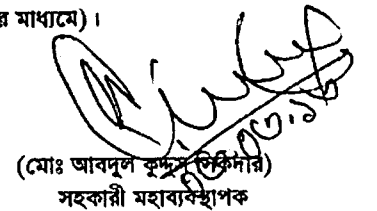 র মাধ্যমে)।
(মোঃ আবদুল কুদ্দুস সিকদার)
সহকারী মহাব্যবস্থাপক